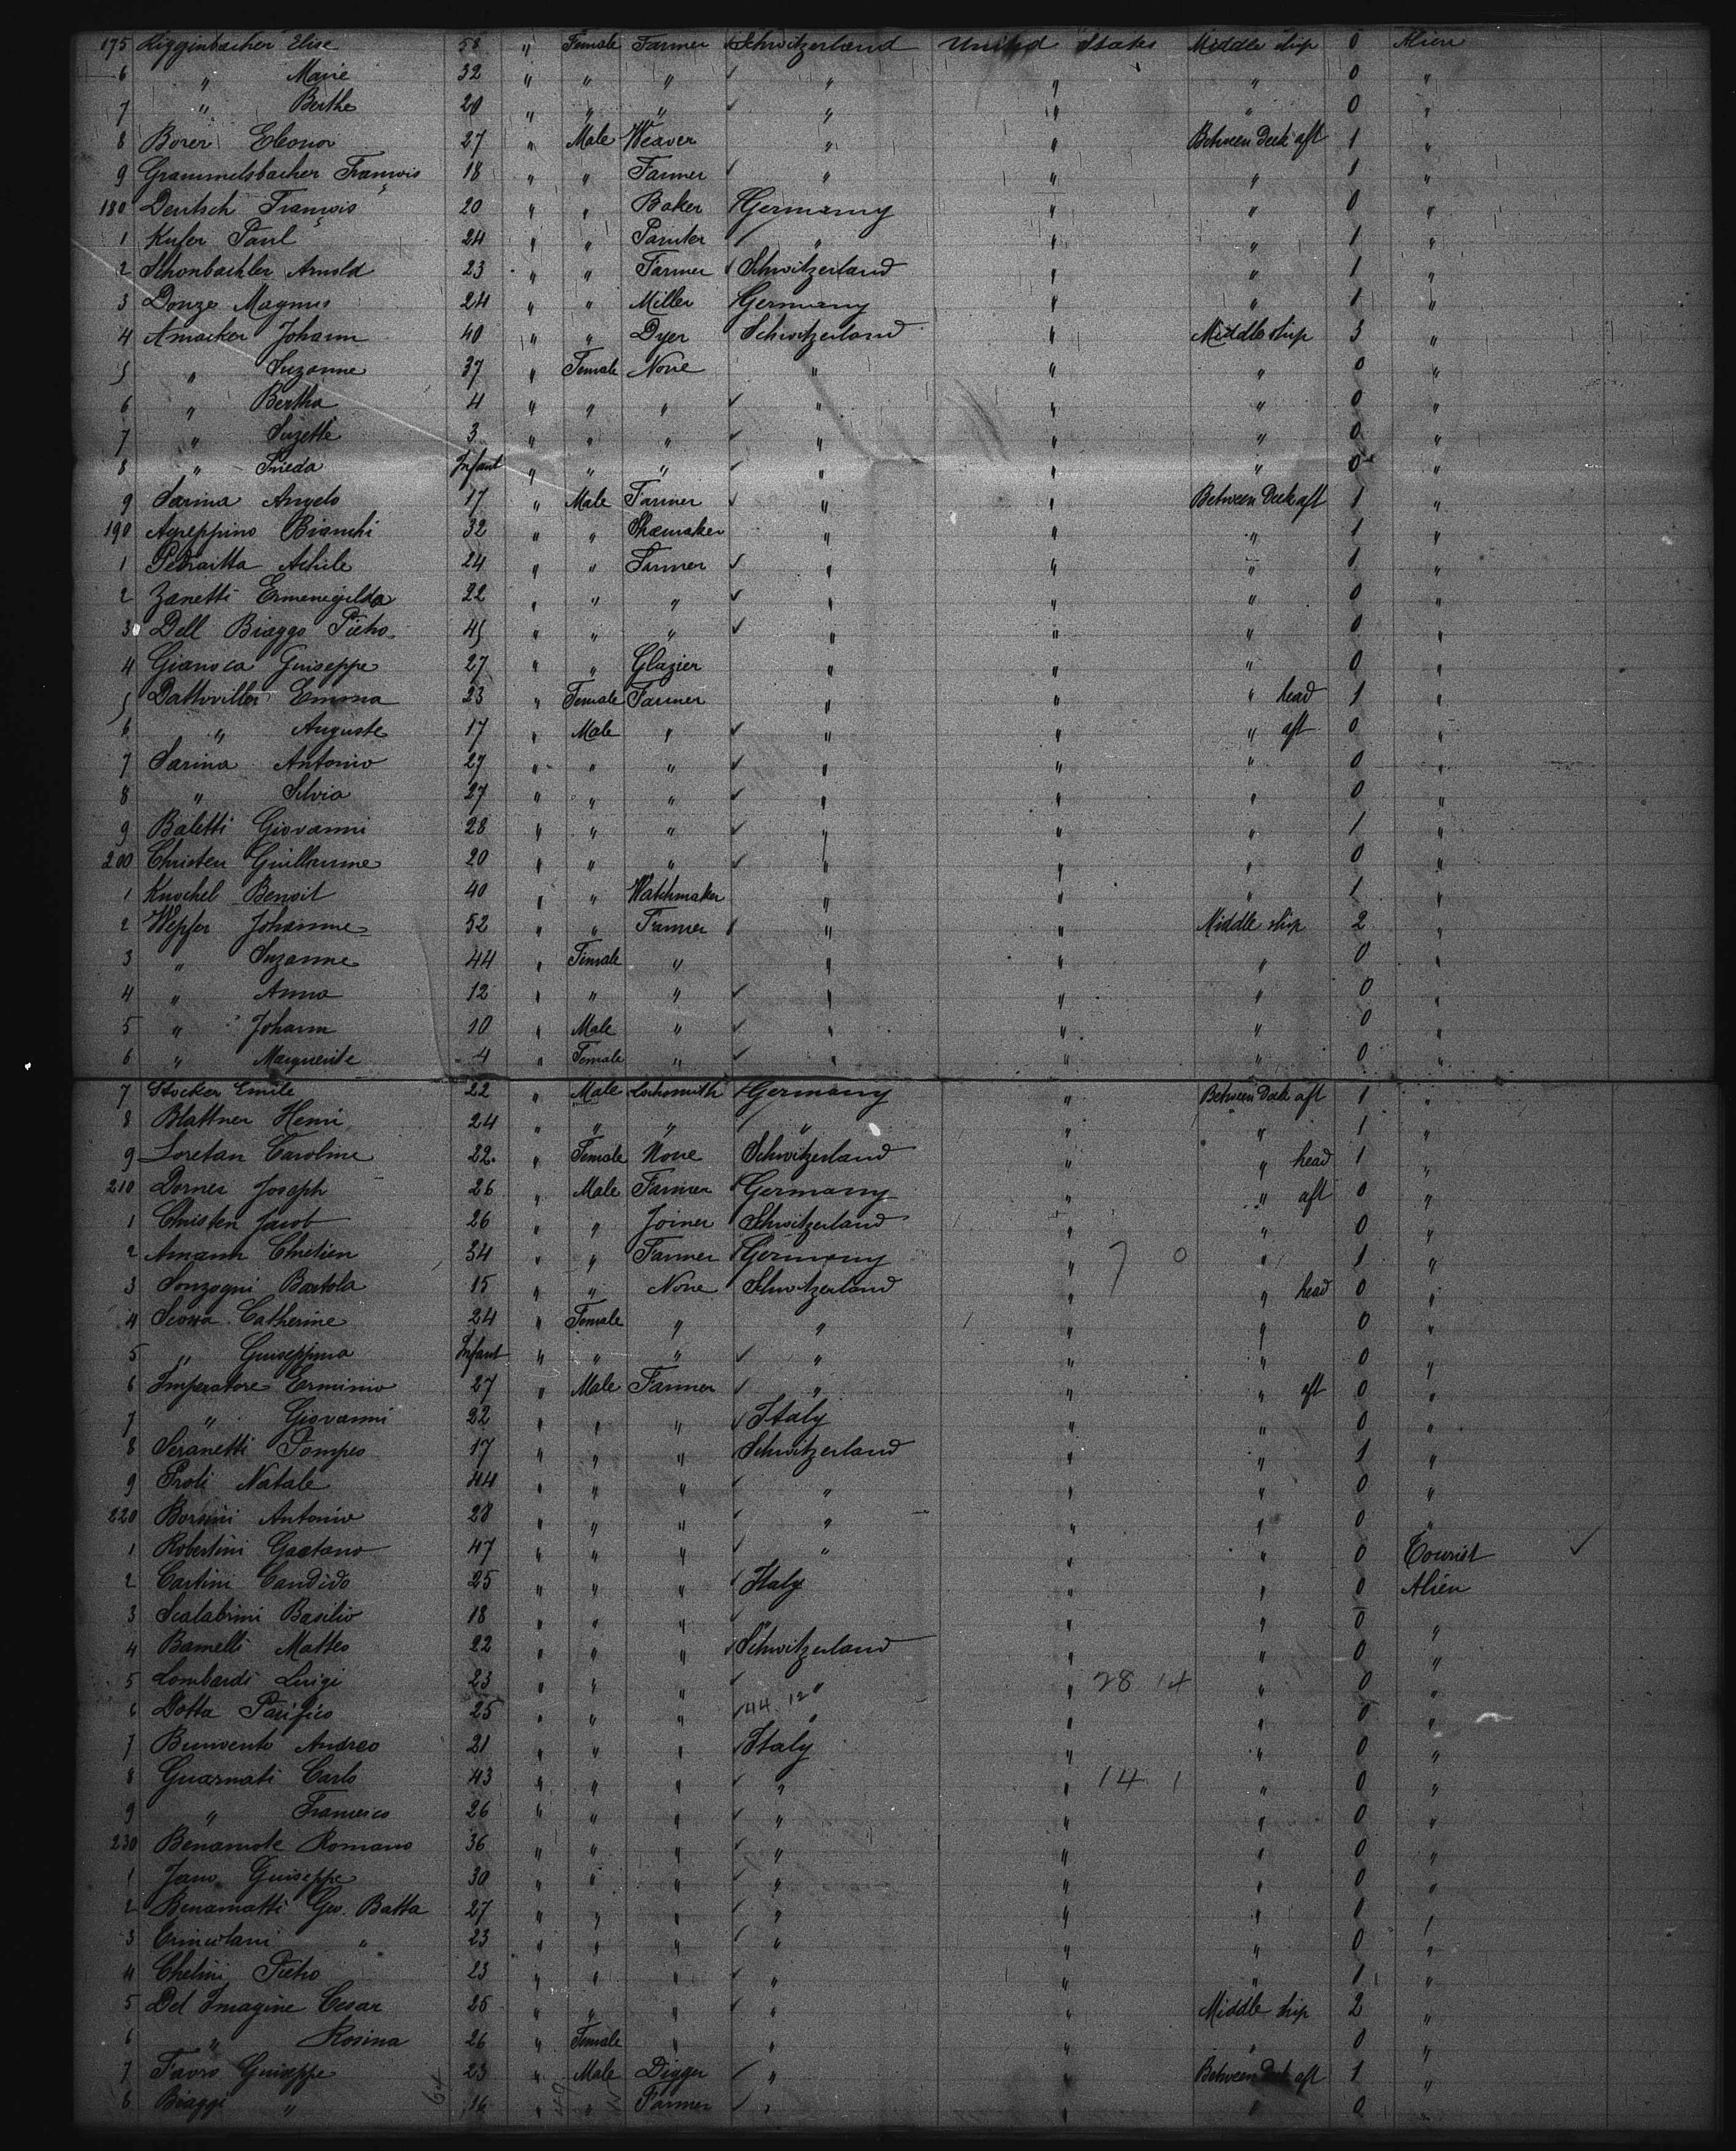 175 Rigginbacher Elise 58 " Female Farmer Schwitzerland United States Middle ship 0 Alien
6 " Marie 32 " " " " " " 0 "
7 " Berthe 20 " " " " " " 0 "
8 Borer Eleonor 27 " Male Weaver " " Between Deck aft 1 "
9 Grammelsbacher François 18 " " Farmer " " " 1 "
180 Deutsch François 20 " " Baker Germany " " 0 "
1 Kufer Paul 24 " " Painter " " " 1 "
2 Schonbachler Arnold 23 " " Farmer Schwitzerland " " 1 "
3 Donze Magnus 24 " " Miller Germany " " 1 "
4 Amacker Johann 40 " " Dyer Schwitzerland " Middle ship 3 "
5 " Suzanne 37 " Female None " " " 0 "
6 " Bertha 4 " " " " " " 0 "
7 " Suzette 3 " " " " " " 0 "
8 " Frieda Infant " " " " " " 0 "
9 Sarina Angelo 17 " Male Farmer " " Between Deck aft 1 "
190 Agreppino Bianchi 32 " " Shœmaker " " " 1 "
1 Pedraitta Achile 24 " " Farmer " " " 1 "
2 Zanetti Ermenegilda 22 " " " " " " 0 "
3 Dell Biaggo Pietro 45 " " " " " " 0 "
4 Gianoca Guiseppe 27 " " Glazier " " " 0 "
5 Emma 23 " Female Farmer " " " head 1 "
6 " Auguste 17 " Male " " " " aft 0 "
7 Sarina Antonio 27 " " " " " " 0 "
8 " Silvio 27 " " " " " " 0 "
9 Baletti Giovanni 28 " " " " " " 1 "
200 Christen Guillaume 20 " " " " " " 0 "
1 Knochel Benoit 40 " " Watchmaker " " " 1 "
2 Wepfer Johanne 52 " " Farmer " " Middle ship 2 "
3 " Suzanne 44 " Female " " " " 0 "
4 " Anna 12 " " " " " " 0 "
5 " Johann 10 " Male " " " " 0 "
6 " Marguerite 4 " Female " " " " 0 "
7 Stocker Emile 22 " Male Locksmith Germany " Between Deck aft 1 "
8 Blattner Henri 24 " " " " " " 1 "
9 Loretan Caroline 22 " Female None Schwitzerland " " head 1 "
210 Dorner Joseph 26 " Male Farmer Germany " " aft 0 "
1 Christen Jacob 26 " " Joiner Schwitzerland " " 0 "
2 Amann Chretien 34 " " Farmer Germany " 7 0 " 1 "
3 Sonzogni Bortola 15 " " None Schwitzerland " " head 0 "
4 Catherine 24 " Female " " " " 0 "
5 " Guiseppina Infant " " " " " " 0 "
6 Imperatore Erminio 27 " Male Farmer " " " aft 0 "
7 " Giovanni 22 " " " Italy " " 0 "
8 Seranetti Pompeo 17 " " " Schwitzerland " " 1 "
9 Proli Natale 44 " " " " " " 0 "
220 Borsini Antonio 28 " " " " " " 0 "
1 Robertini Gaetano 47 " " " " " " 0 Tourist ✓
2 Cartini Candido 25 " " " Italy " " 0 Alien
3 Scalabrini Basilio 18 " " " " " " 0 "
4 Bamelli Matteo 22 " " " Schwitzerland " " 0 "
5 Lombardi Luigi 23 " " " " " 28 14 " 0 "
6 Dotta Pacifico 25 " " " 44 12 " " " 0 "
7 Bunivento Andreo 21 " " " Italy " " 0 "
8 Guarnati Carlo 43 " " " " " 14 1 " 0 "
9 " Francesco 26 " " " " " " 0 "
230 Benamote Romano 36 " " " " " " 0 "
1 Jano Guiseppe 30 " " " " " " 0 "
2 Benamatti Geo. Batta 27 " " " " " " 1 "
3 " 23 " " " " " " 0 "
4 Chelini Pietro 23 " " " " " " 1 "
5 Del Imagine Cesar 25 " " " " " Middle ship 2 "
6 " Rosina 26 " Female " " " " 0 "
7 Favro Guiseppe 23 " Male Digger " " Between Deck aft 1 "
8 Biaggi " 16 " " Farmer " " " 0 "